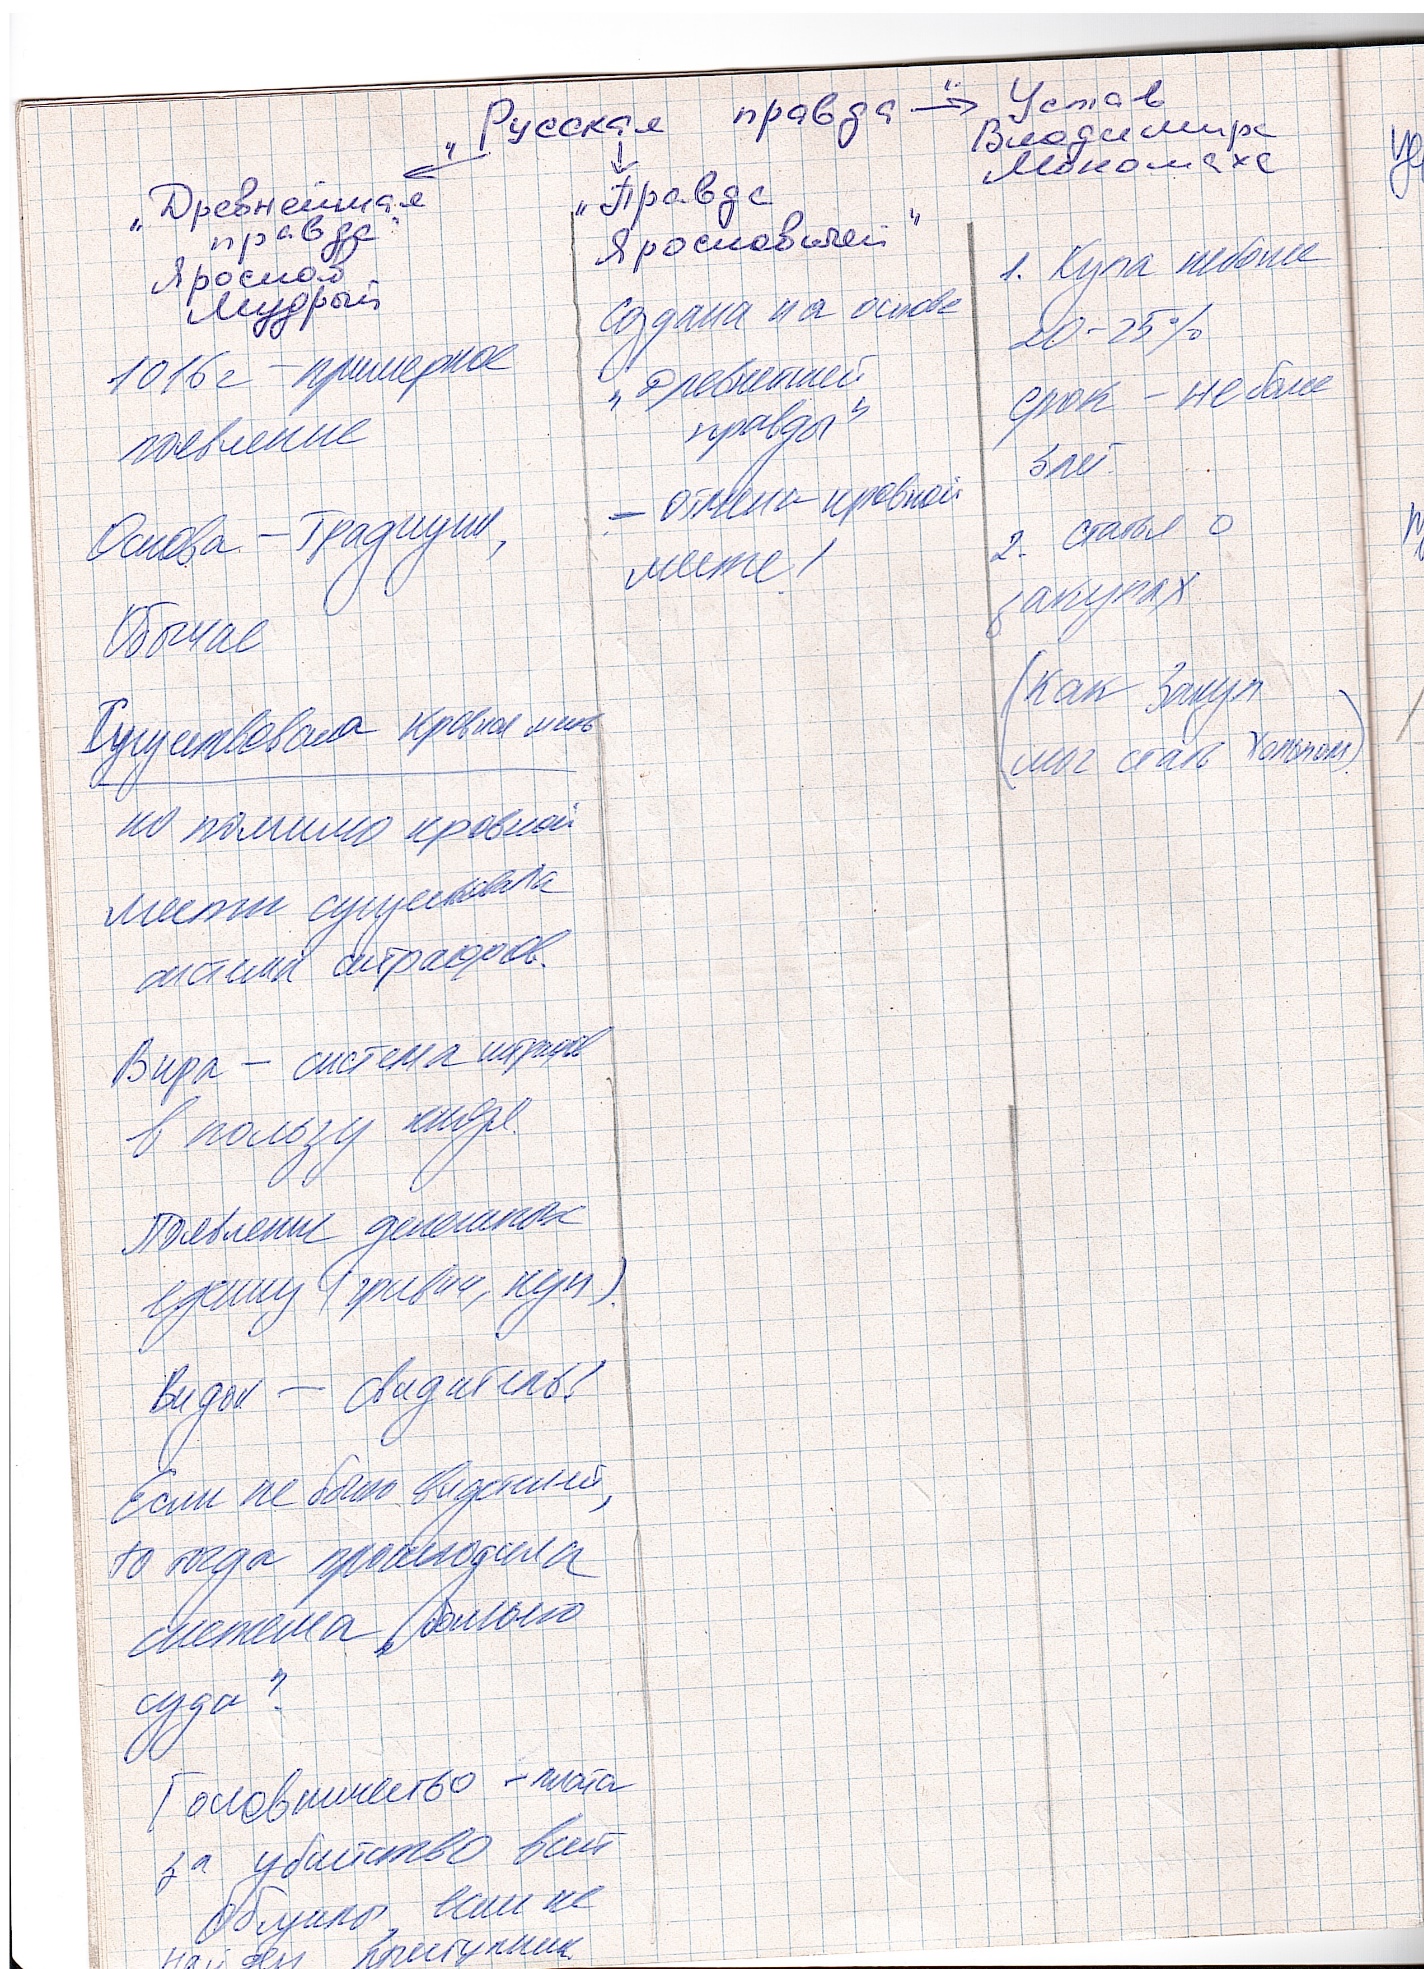 „Русская правда" → Устав
Владимира
Мономаха
„Древнейшая
правда"
Ярослав
Мудрый
1016 г – примерное
появление
Основа – Традиции,
Обычае
Существовала кровная месть
но помимо кровной
мести существовала
система штрафов.
Вира – система штрафов
в пользу князя.
Появление денежных
единиц (гривны, куны).
Видок – свидетель!
Если не было свидетелей,
то тогда происходила
система „божьего
суда".
Головничество – плата
за убийство всей
общины, если не
найден преступник
„Правда
Ярославичей"
Создана на основе
„Древнейшей
правды"
– отмена кровной
мести!
1. Купа не более
20-25%
срок – не более
3 лет.
2. статья о
закупах
(Как Закуп
мог стать холопом)